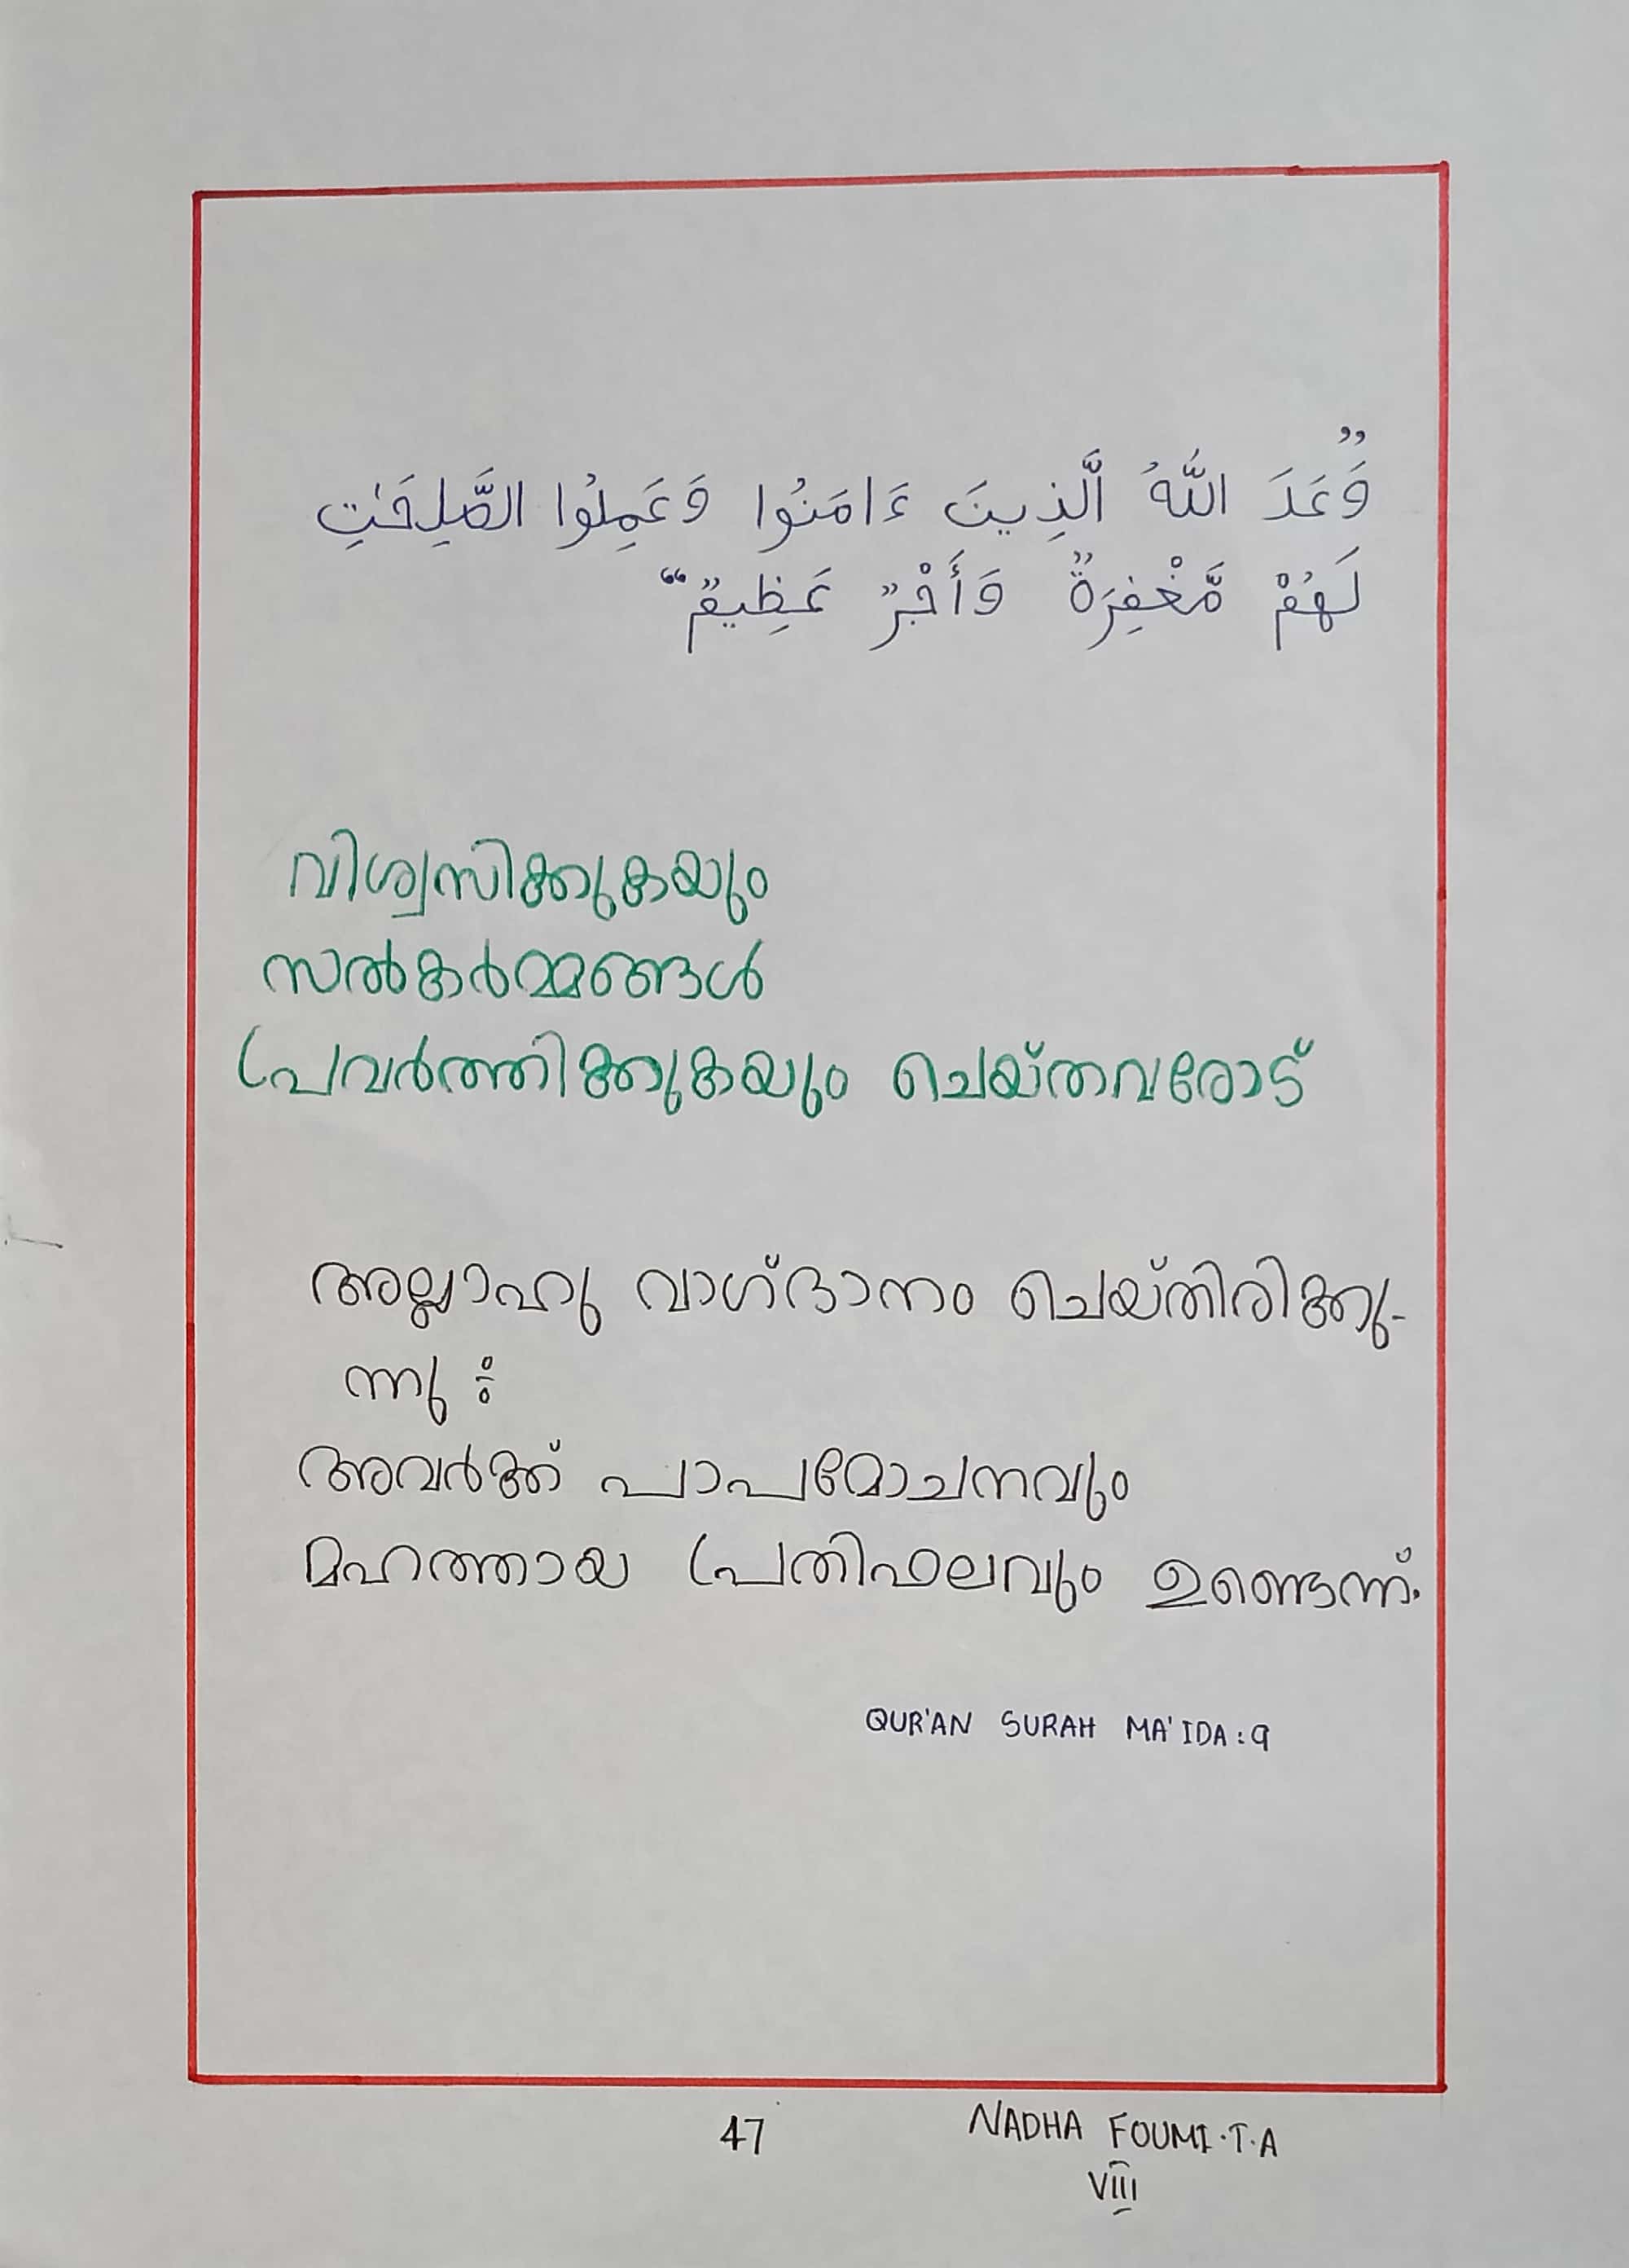 ”وَعَدَ اللَّهُ الَّذِينَ ءَامَنُوا وَعَمِلُوا الصَّٰلِحَٰتِ
لَهُمْ مَّغْفِرَةٌ وَأَجْرٌ عَظِيمٌ“
വിശ്വസിക്കുകയും
സൽകർമ്മങ്ങൾ
പ്രവർത്തിക്കുകയും ചെയ്തവരോട്
അല്ലാഹു വാഗ്ദാനം ചെയ്തിരിക്കു-
ന്നു :
അവർക്ക് പാപമോചനവും
മഹത്തായ പ്രതിഫലവും ഉണ്ടെന്ന്.
QUR'AN SURAH MA'IDA:9
47
NADHA FOUMI.T.A
VIII